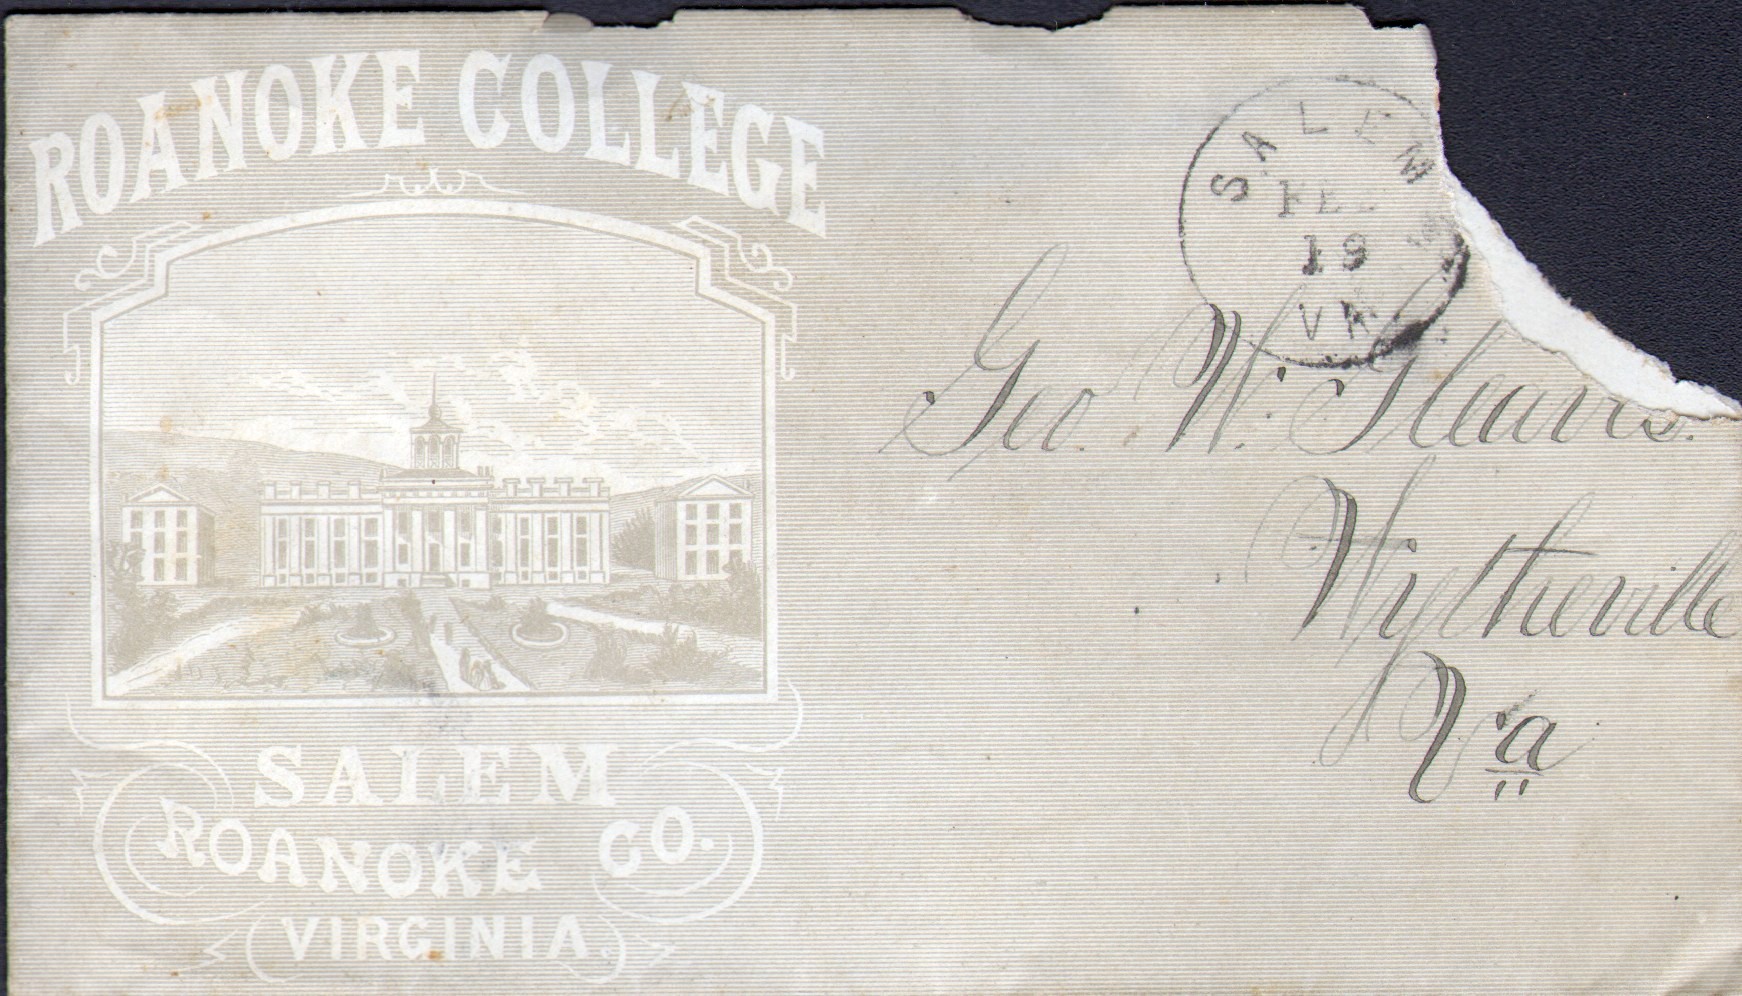 ROANOKE COLLEGE
SALEM
ROANOKE CO.
VIRGINIA.
SALEM
FEB
19
VA
Geo. W. Sleaves.
Wytheville
Va